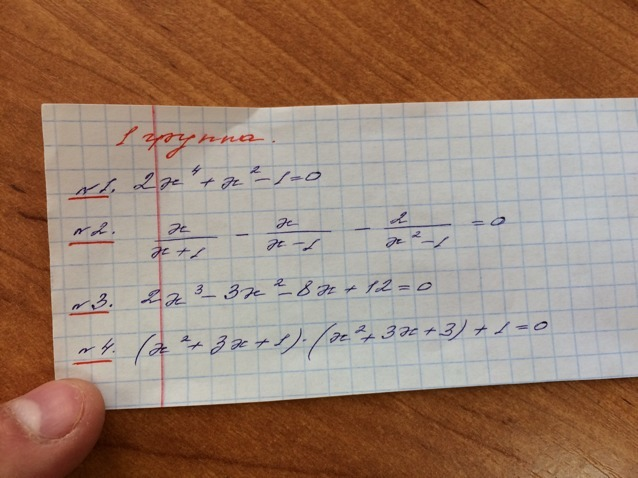 1 группа.
№1. 2x⁴ + x² - 1 = 0
№2. x/(x+1) - x/(x-1) - 2/(x²-1) = 0
№3. 2x³ - 3x² - 8x + 12 = 0
№4. (x² + 3x + 1)·(x² + 3x + 3) + 1 = 0